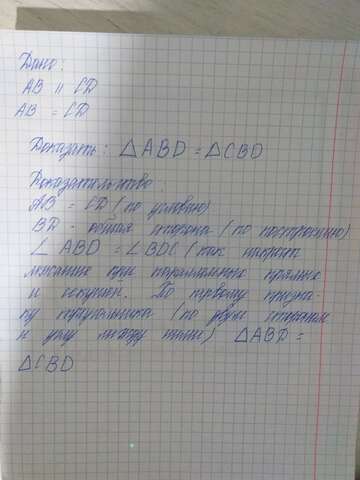 Дано:
AB || CD
AB = CD
Доказать: △ABD = △CBD
Доказательство
AB = CD (по условию)
BD - общая сторона (по построению)
∠ABD = ∠BDC (как накрест
лежащие при параллельных прямых
и секущей. По первому призна-
ку треугольника (по двум сторонам
и углу между ними) △ABD =
△CBD